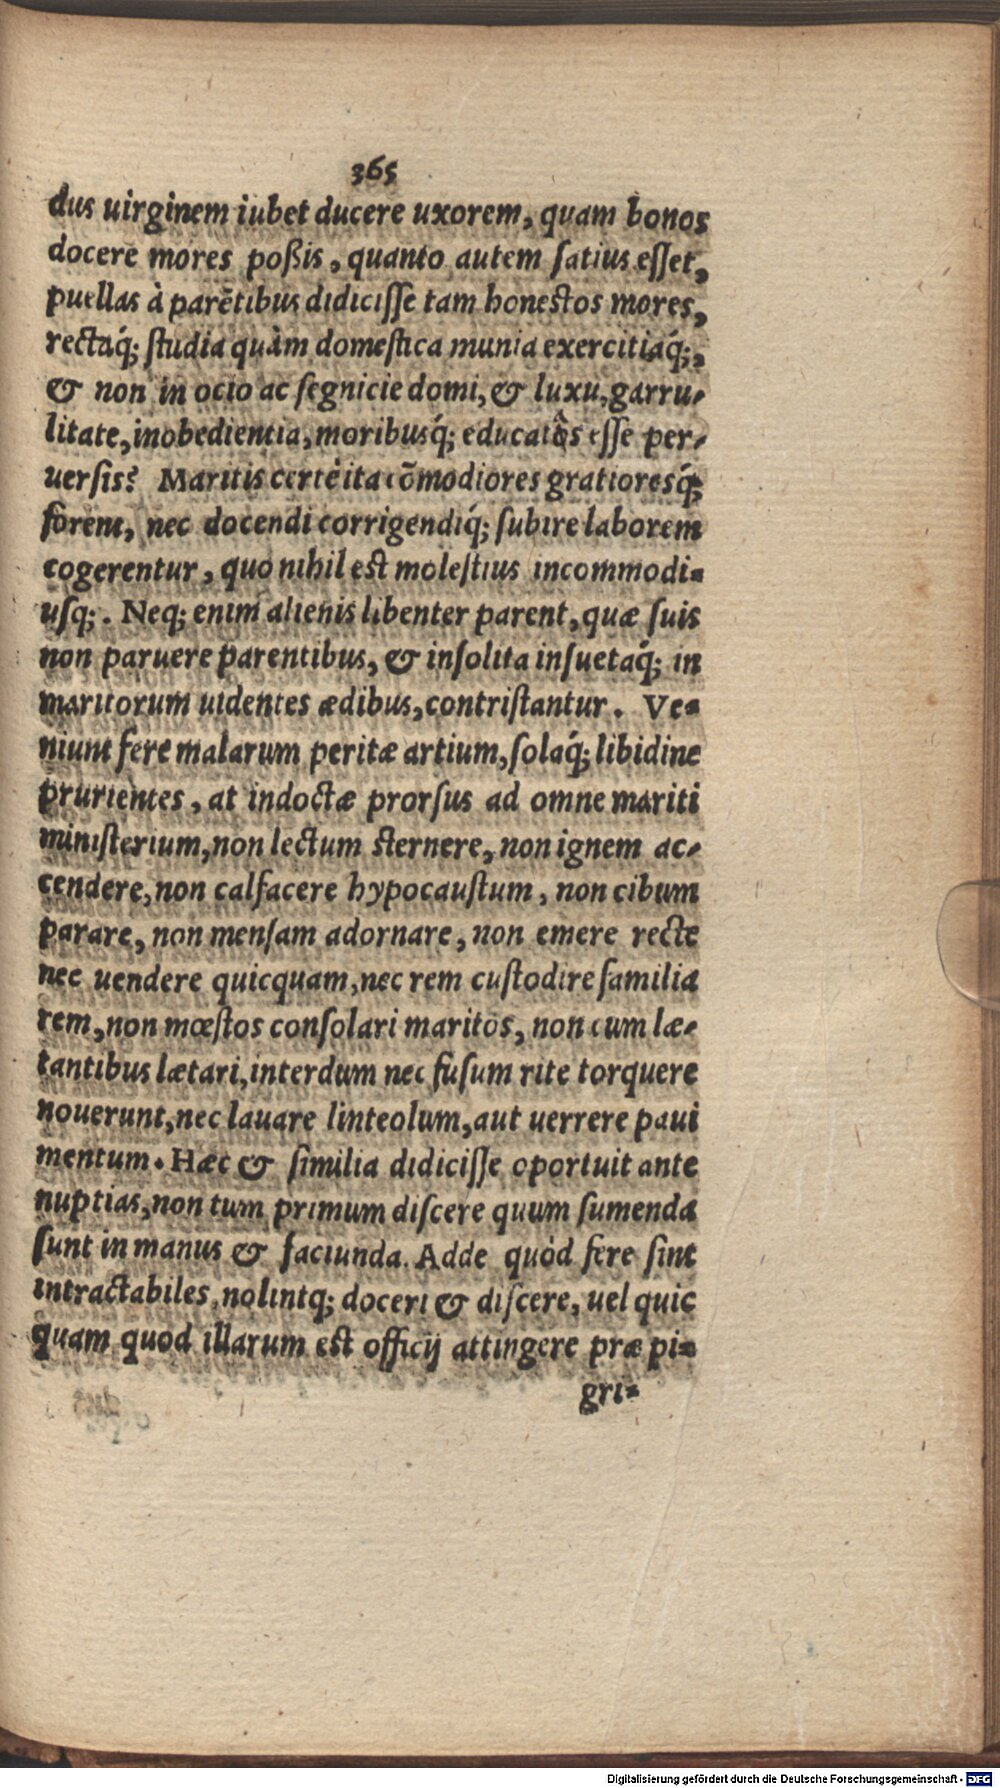 365
dus uirginem iubet ducere uxorem, quam bonos
docere mores poßis, quanto autem ſatius eſſet,
puellas à parẽtibus didiciſſe tam honestos mores,
rectaq́; ſtudia quàm domeſtica munia exercitiaq́;,
& non in ocio ac ſegnicie domi, & luxu, garru-
litate, inobedientia, moribusq́; educatas eſſe per-
uerſis? Maritis certè ita cõmodiores gratioresq́;
forent, nec docendi corrigendiq́; ſubire laborem
cogerentur, quo nihil est moleſtius incommodi-
uſq;. Neq; enim alienis libenter parent, quæ ſuis
non paruere parentibus, & inſolita inſuetaq́; in
maritorum uidentes ædibus, contriſtantur. Ve-
niunt fere malarum peritæ artium, ſolaq́; libidine
prurientes, at indoctæ prorſus ad omne mariti
miniſterium, non lectum sternere, non ignem ac-
cendere, non calfacere hypocauſtum, non cibum
parare, non menſam adornare, non emere recte
nec uendere quicquam, nec rem cuſtodire familia
rem, non mœſtos conſolari maritos, non cum læ-
tantibus lætari, interdum nec fuſum rite torquere
nouerunt, nec lauare linteolum, aut uerrere paui
mentum. Hæc & ſimilia didiciſſe oportuit ante
nuptias, non tum primum diſcere quum ſumenda
ſunt in manus & faciunda. Adde quòd fere ſint
intractabiles, nolintq; doceri & diſcere, uel quic
quam quod illarum est officij attingere præ pi-
gri-
Digitalisierung gefördert durch die Deutsche Forschungsgemeinschaft - DFG